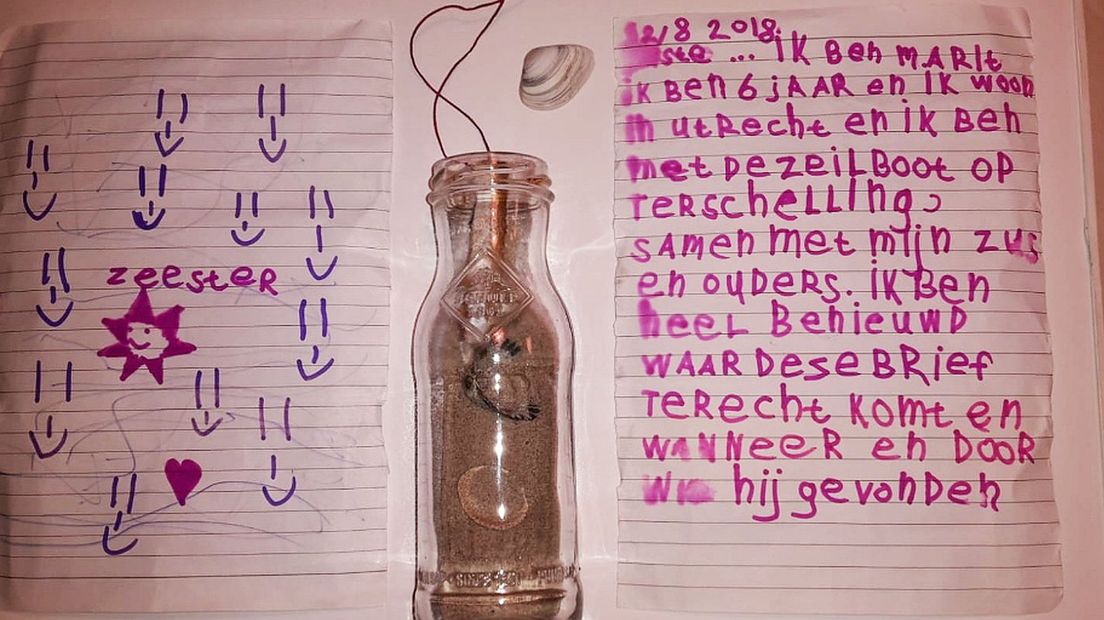 zeester
12/8 2018.
... ik Ben MARIt
ik Ben 6 jAAR en ik woon
in utRecht en ik Ben
met De zeilBoot op
TeRscheLLing,
sAmen met mijn zus
en ouDeRs. ik Ben
heel Benieuwd
WAAR Dese BRief
TeRecht komt en
WANNeeR en DooR
hij gevonden